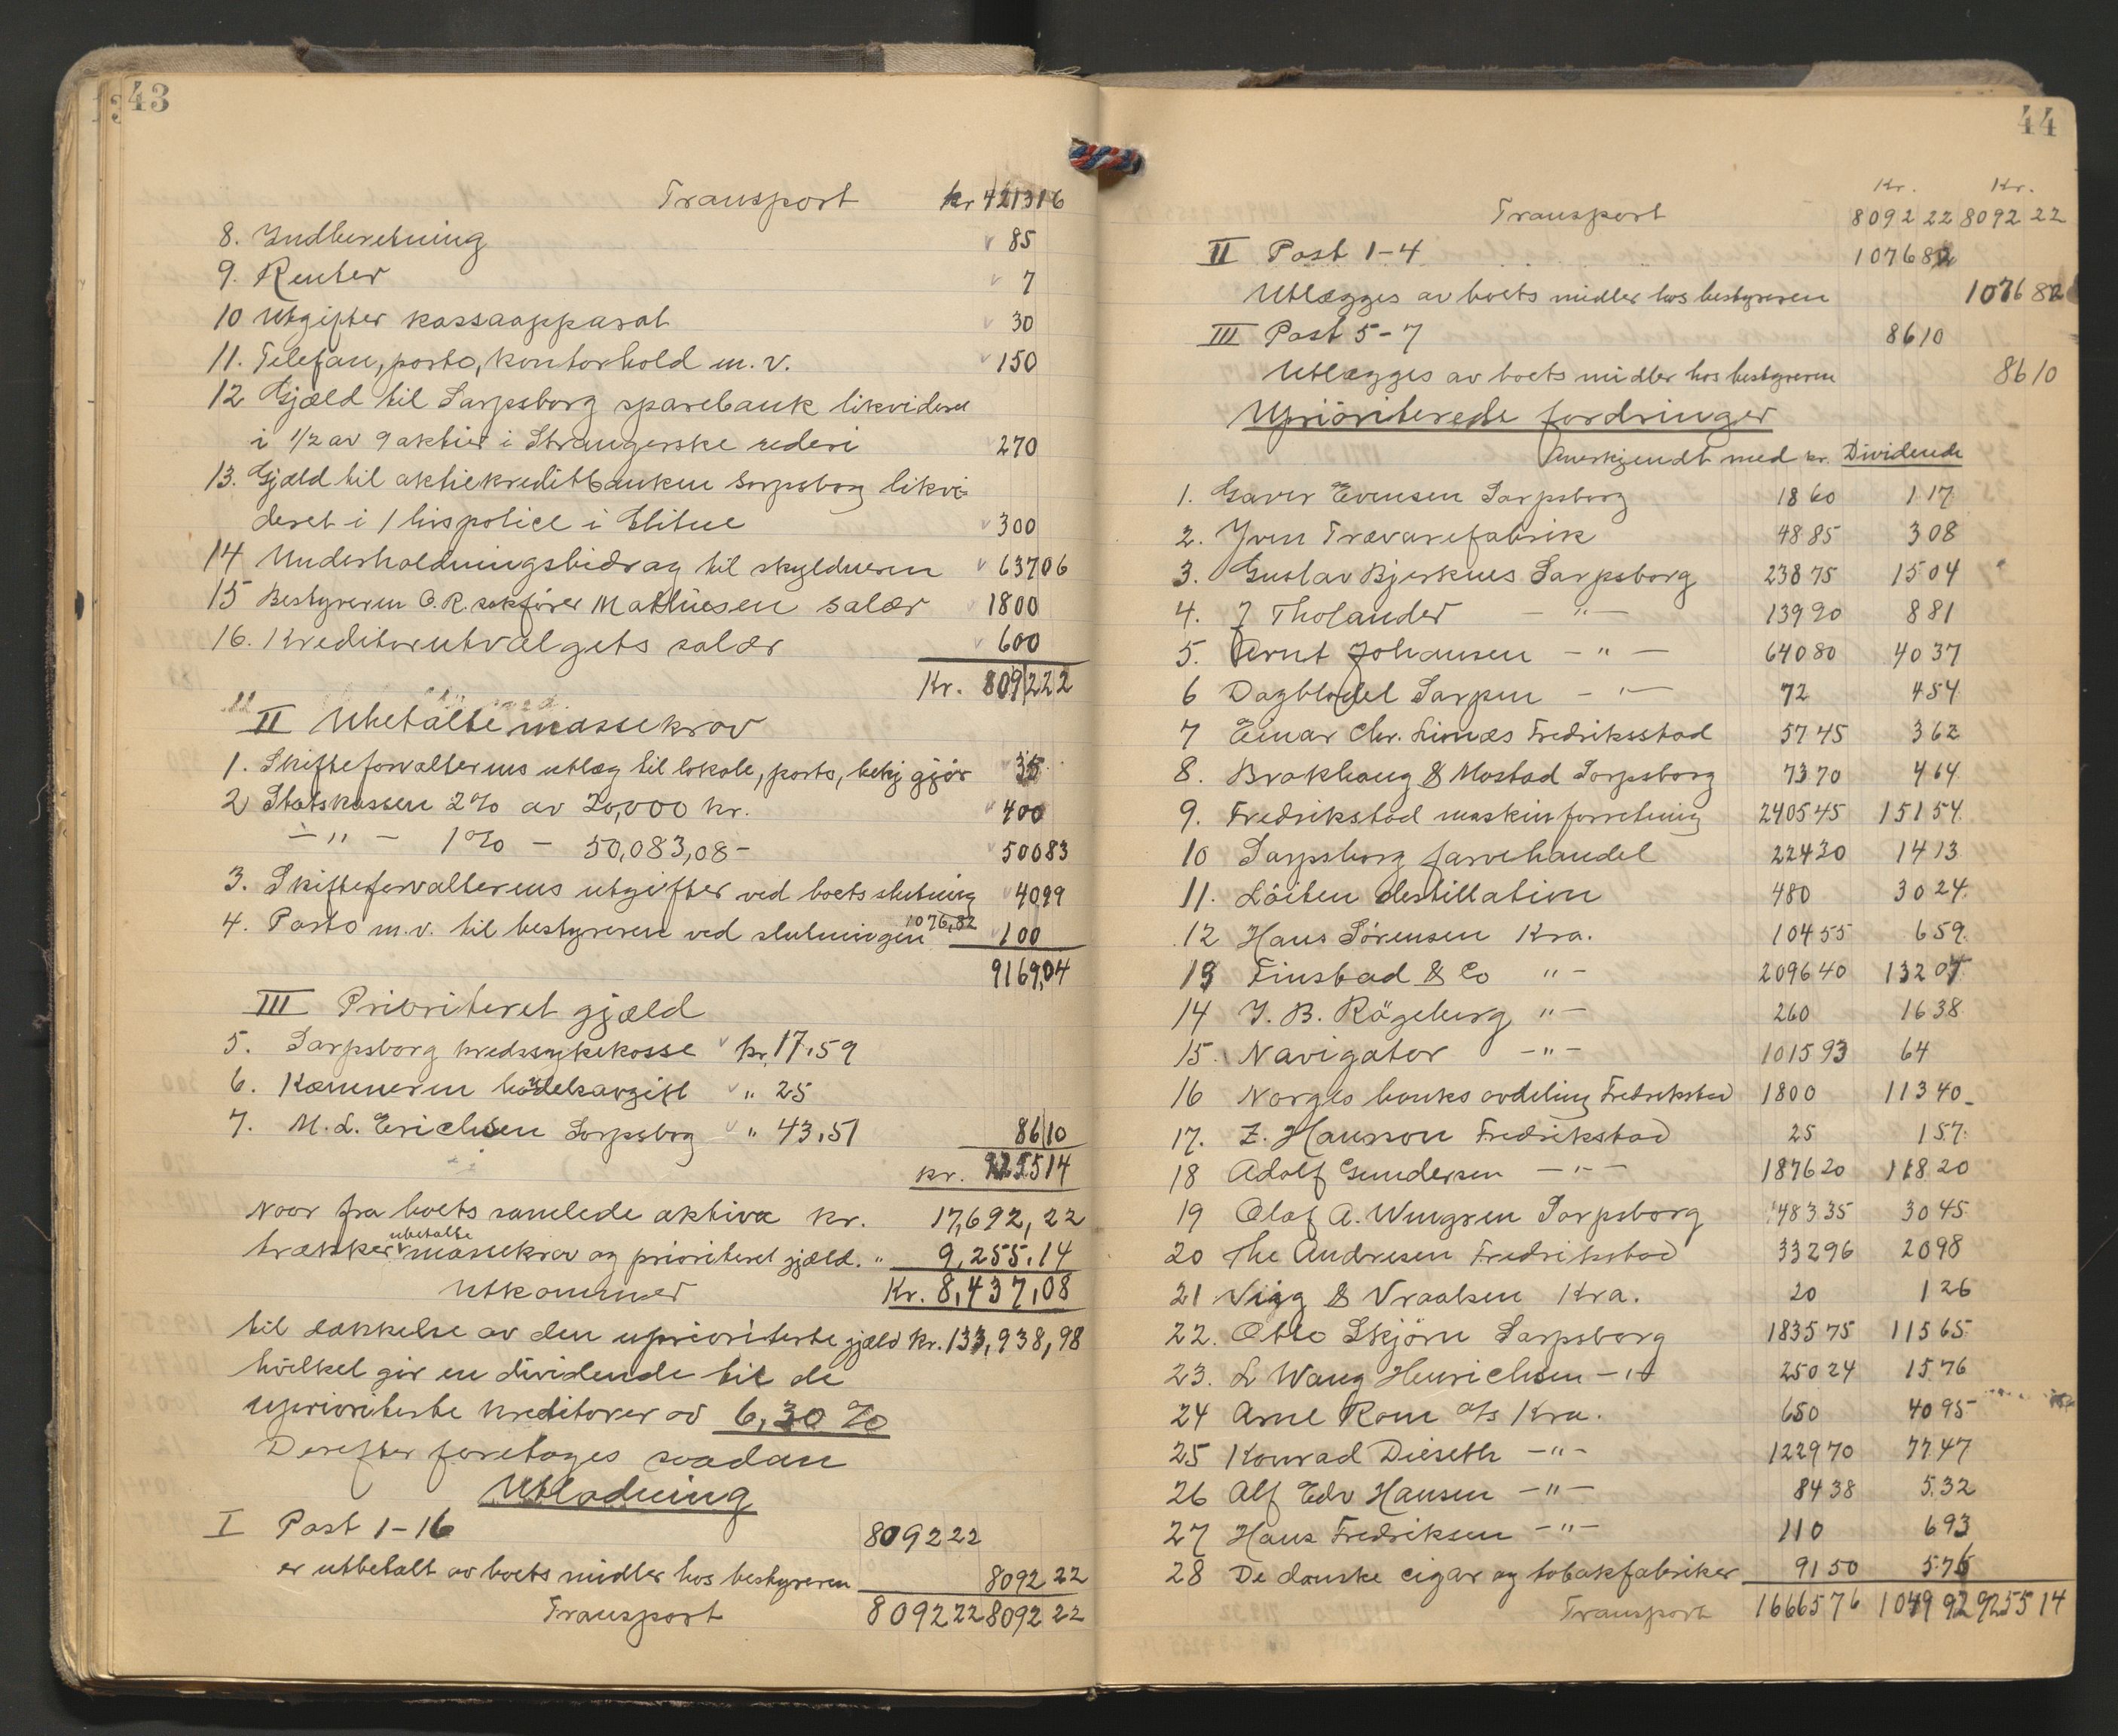 43
Transport kr 4213 16
8. Indberetning 85
9. Renter 7
10 Utgifter kassaapparat 30
11. Telefon, porto, kontorhold m.v. 150
12 Gjæld til Sarpsborg sparebank likvideret
i 1/2 av 9 aktier i Strangerske rederi 270
13. Gjæld til aktiekreditbanken Sarpsborg likvi-
deret i 1 livspolice i Elitne 300
14 Underholdningsbidrag til skyldneren 637 06
15 Bestyreren O.R. sakfører Mathiesen salær 1800
16. Kreditorutvalgets salær 600
Kr. 8092 22
II Ubetalte massekrav
1. Skifteforvalterens utlæg til lokale, porto, bekj gjør 35
2 Statskassen 2% av 20,000 kr. 400
— " — 1% — 50,083,08 - 500 83
3. Skifteforvalterens utgifter ved boets slutning 40 99
4. Porto m.v. til bestyreren ved slutningen 1076,82 100
9169,04
III Prioriteret gjæld
5. Sarpsborg kredssykekasse kr. 17.59
6. Kæmneren handelsavgift " 25
7. M. L. Erichsen Sarpsborg " 43,51 86 10
kr. 9255 14
Naar fra boets samlede aktiva kr. 17,692,22
trækkes ubetalte massekrav og prioriteret gjæld. " 9,255.14
utkommer Kr. 8,437,08
til dækkelse av den uprioriterte gjæld kr. 133,938,98
hvilket gir en dividende til de
uprioriterte kreditorer av 6,30 %
Derefter foretages saadan
Utlodning
I Post 1-16 8092 22
er utbetalt av boets midler hos bestyreren 8092 22
Transport 8092 22 8092 22
44
Kr. Kr.
Transport 8092 22 8092 22
II Post 1-4 1076 82
Utlægges av boets midler hos bestyreren 1076 82
III Post 5-7 86 10
Utlægges av boets midler hos bestyreren 86 10
Uprioriterede fordringer
Anerkjendt med kr. Dividende
1. Gaver Evensen Sarpsborg 18 60 1 17
2. Yven Trævarefabrik 48 85 3 08
3. Gustav Bjerknes Sarpsborg 238 75 15 04
4. J Tholander — " — 139 90 8 81
5. Arnt Johansen — " — 640 80 40 37
6 Dagbladet Sarpen — " — 72 4 54
7 Einar Chr. Limæs Fredriksstad 57 45 3 62
8. Brakhaug & Mostad Sarpsborg 73 70 4 64
9. Fredrikstad maskinforretning 2405 45 151 54
10 Sarpsborg farvehandel 224 30 14 13
11. Løiten destillation 480 30 24
12 Hans Sørensen Kra. 104 55 6 59
13 Finstad & Co " - 2096 40 132 07
14 J. B. Rögeberg " - 260 16 38
15. Navigator — " — 1015 93 64
16 Norges banks avdeling Fredrikstad 1800 113 40
17. Z. Hansson Fredrikstad 25 1 57
18 Adolf Gundersen — " — 1876 20 118 20
19 Olaf A. Wingren Sarpsborg 483 35 30 45
20 The Andresen Fredrikstad 332 96 20 98
21 Viig & Vraalsen Kra. 20 1 26
22. Otto Skjørn Sarpsborg 1835 75 115 65
23. L Wang Henrichsen — " 250 24 15 76
24 Arne Rom a/s Kra. 650 40 95
25 Konrad Dieseth — " - 1229 70 77 47
26 Alf Edv Hansen — " — 84 38 5.32
27 Hans Fredriksen — " — 110 6 93
28 De danske cigar og tobakfabriker 91 50 5.76
Transport 16665 76 1049 92 9255 14